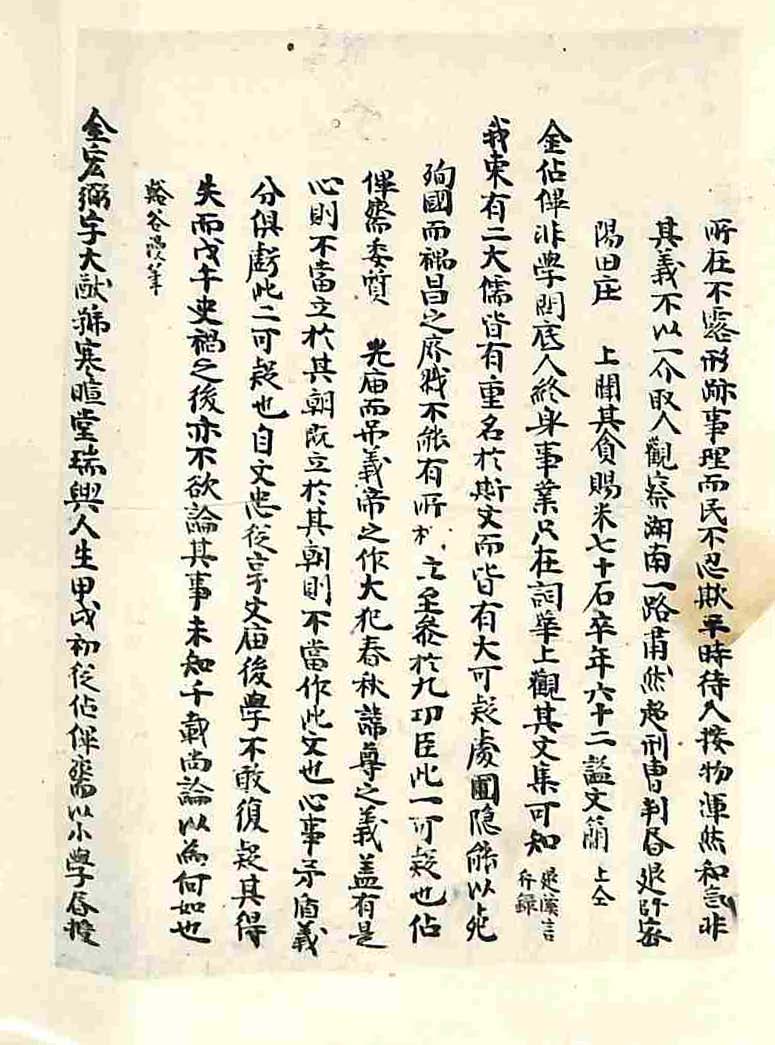 所在不露形跡事理而民不忍欺平時待人接物渾然和氣非
其義不以一介取人觀察湖南一路肅然起刑曹判書退歸密
陽田庄 上聞其貧賜米七十石卒年六十二謚文簡 上仝
金佔俾非學問底人終身事業只在詞華上觀其文集可知 退溪言行錄
我東有二大儒皆有重名於斯文而皆有大可疑處圃隱能以死
殉國而禑昌之廢戮不能有所 立至參於九功臣此一可疑也佔
俾齋委質 光庙而吊義帝之作大犯春秋諱尊之義盖有是
心則不當立於其朝既立於其朝則不當作此文也心事矛盾義
分俱虧此二可疑也自文忠從享文庙後學不敢復疑其得
失而戊午史禍之後亦不欲論其事未知千載尚論以為何如也
谿谷漫筆
金宏弼字大猷號寒暄堂瑞興人生甲戌初從佔俾齋以小學